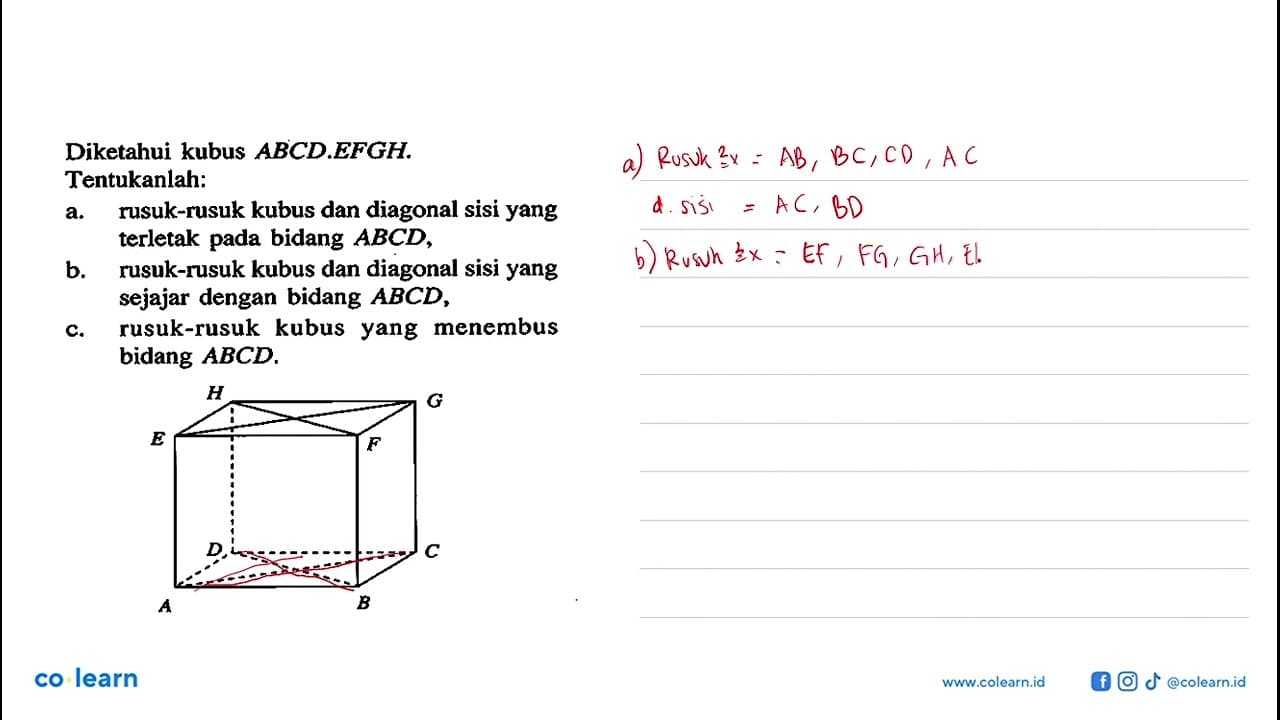 Diketahui kubus ABCD.EFGH.
Tentukanlah:
a. rusuk-rusuk kubus dan diagonal sisi yang
terletak pada bidang ABCD,
b. rusuk-rusuk kubus dan diagonal sisi yang
sejajar dengan bidang ABCD,
c. rusuk-rusuk kubus yang menembus
bidang ABCD.
H
G
E
F
D
C
A
B
a) Rusuk 2x = AB, BC, CD, AC
d. sisi = AC, BD
b) Rusuk 2x = EF, FG, GH,
co learn
www.colearn.id
@colearn.id